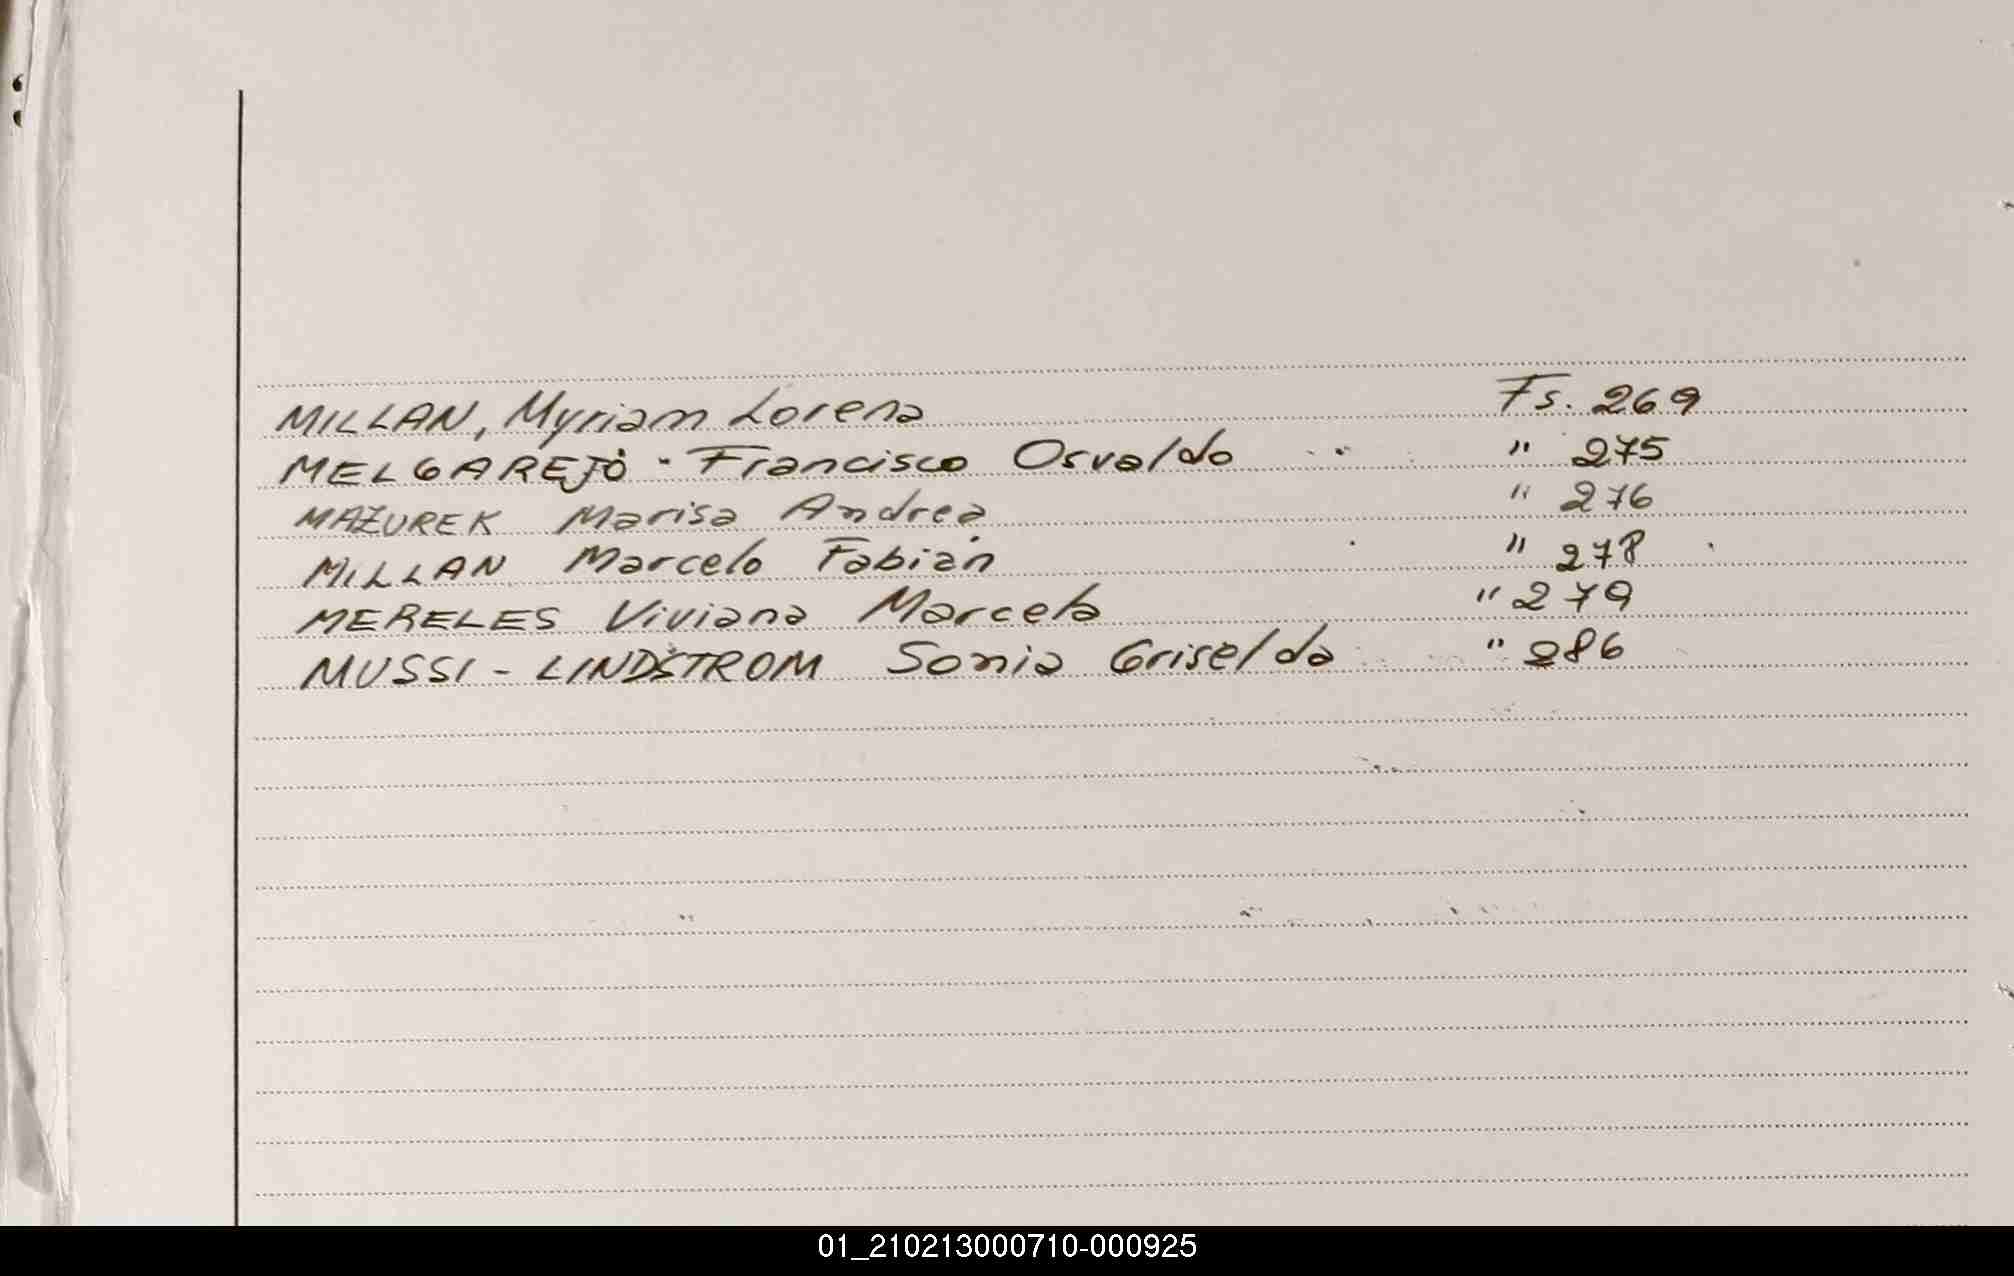 MILLAN, Myriam Lorena Fs. 269
MELGAREJO - Francisco Osvaldo " 275
MAZUREK Marisa Andrea " 276
MILLAN Marcelo Fabián " 278
MERELES Viviana Marcela " 279
MUSSI - LINDSTROM Sonia Griselda " 286
01_210213000710-000925